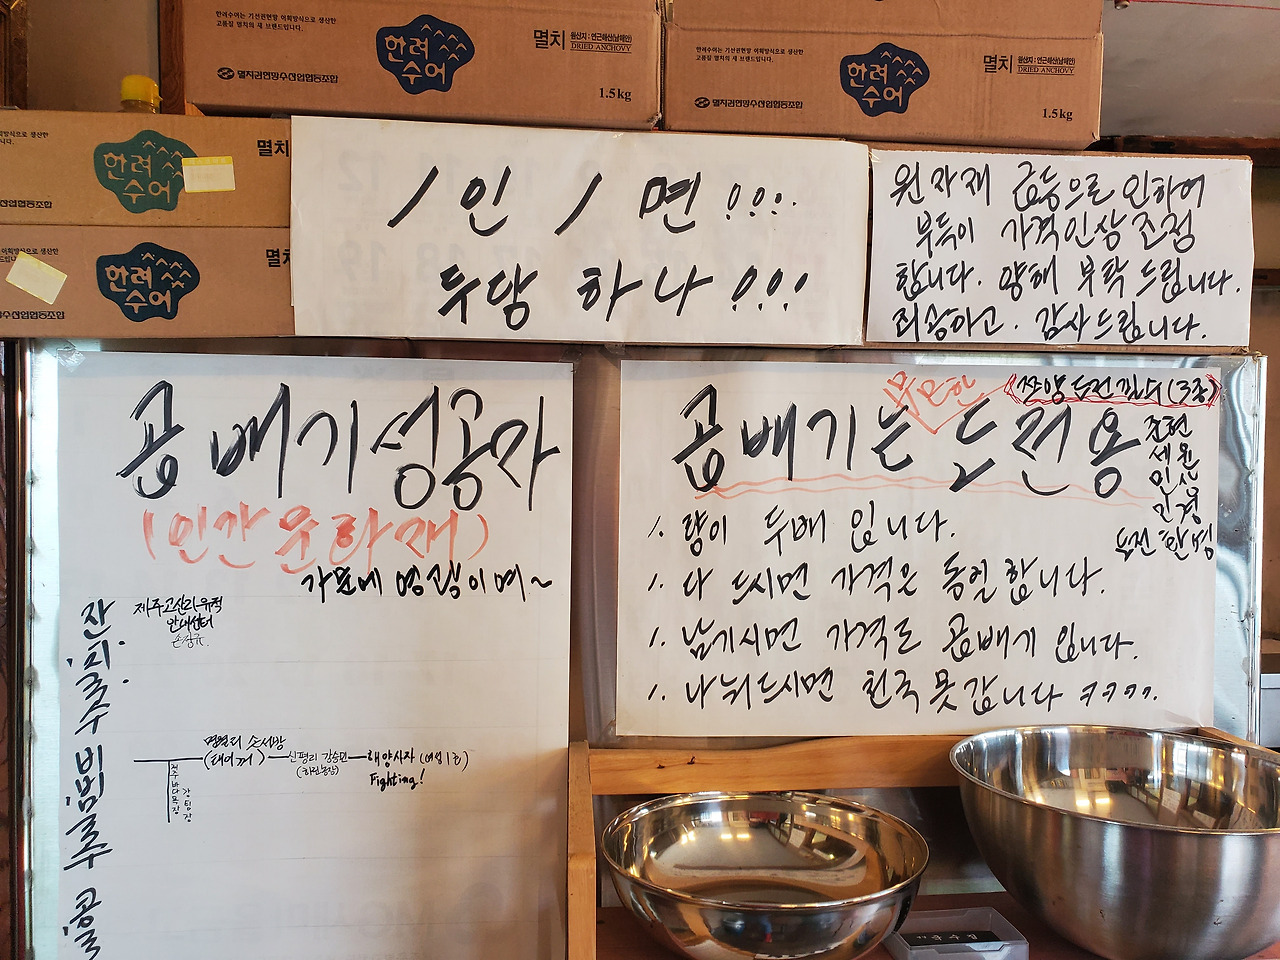 한려수어는 기선권현망 어획방식으로 생산한
고품질 멸치의 새 브랜드입니다.
한려
수어
멸치
원산지 : 연근해산(남해안)
DRIED ANCHOVY
멸치권현망수산업협동조합
1.5kg
한려수어는 기선권현망 어획방식으로 생산한
고품질 멸치의 새 브랜드입니다.
한려
수어
멸치
원산지 : 연근해산(남해안)
DRIED ANCHOVY
멸치권현망수산업협동조합
1.5kg
한려
수어
멸치
한려
수어
1인 1면 !!!.
두담 하나 !!!
원자재 급등으로 인하여
부득이 가격인상 조정
합니다. 양해 부탁 드립니다.
죄송하고. 감사드립니다.
곱배기성공자
(인간문화재)
가문에 영광이여~
제주고산리유적
안내센터
잔치국수 비빔국수 콩국
명월리 손서방
(태이꺼) 신평리 강승민 해양사자 (여성1호)
Fighting!
무모한
곱배기는 도전용
준현
세원
민경
도전 한빙
1. 량이 두배 입니다.
1. 다 드시면 가격은 동일합니다.
1. 남기시면 가격도 곱배기 입니다.
1. 나눠드시면 천국 못갑니다 ㅋㅋㅋㅋ.